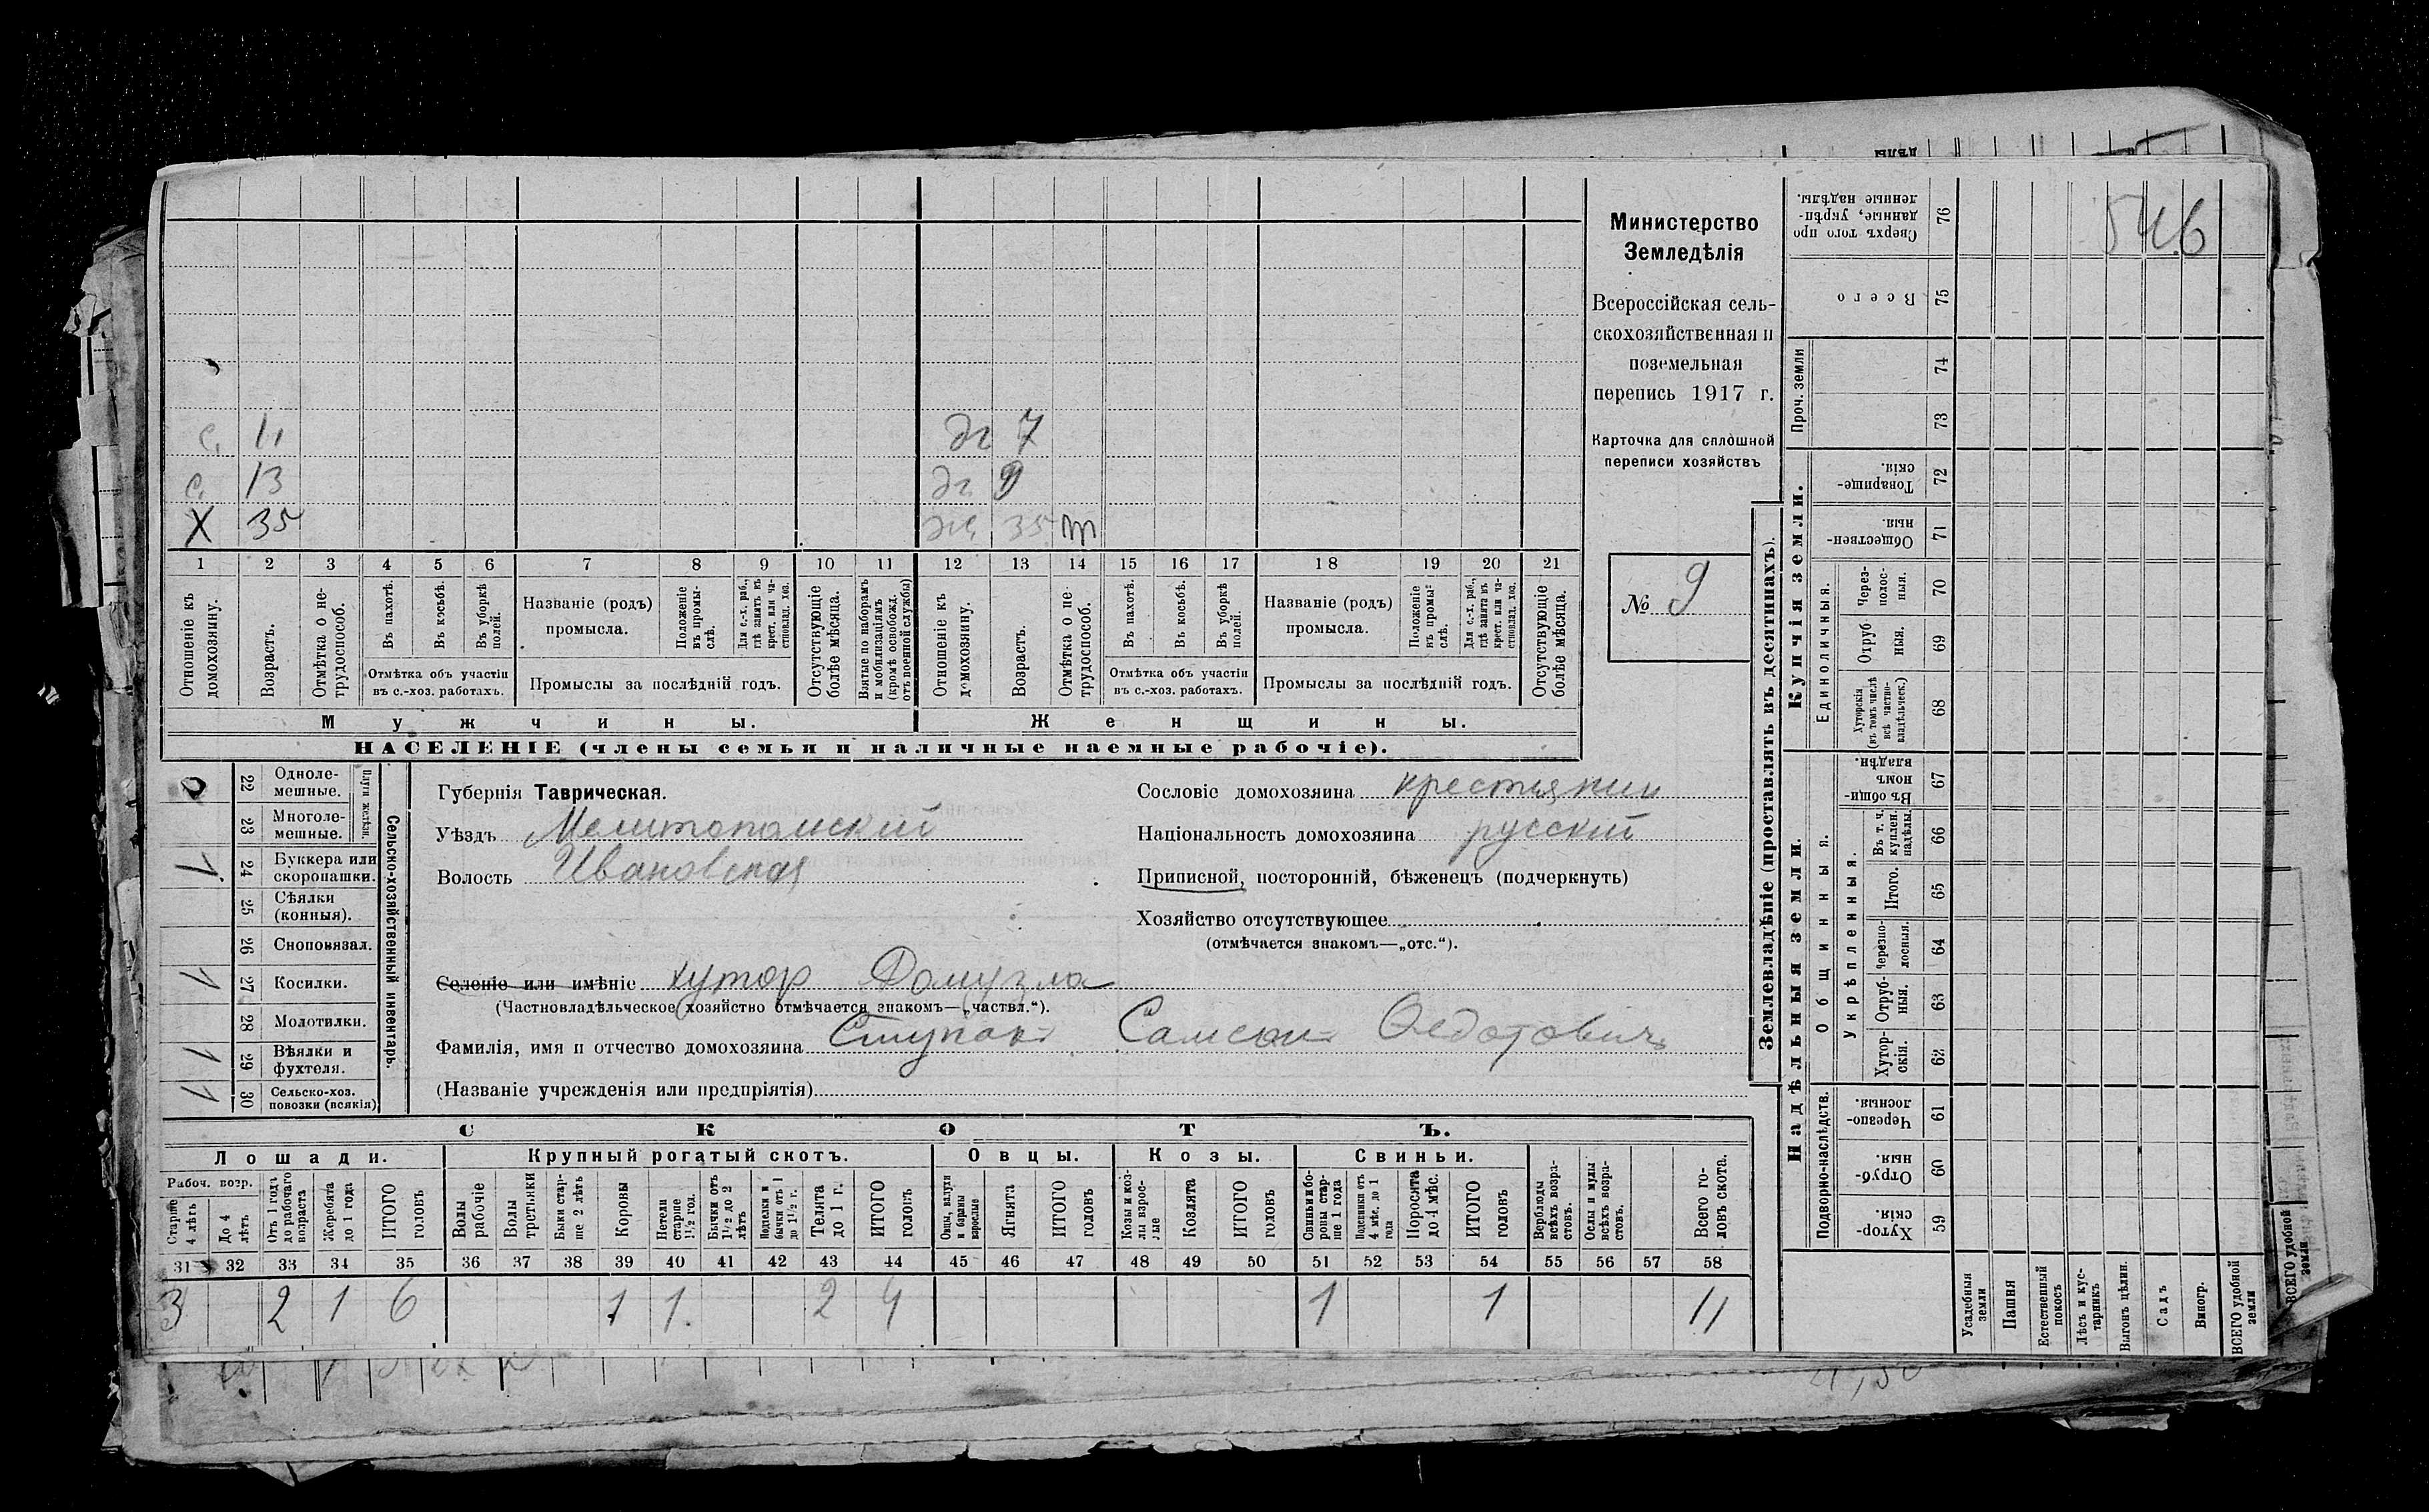 Министерство
Земледѣлія
Всероссійская сель-
скохозяйственная и
поземельная
перепись 1917 г.
Карточка для сплошной
переписи хозяйствъ
№ 9
546
с. 11 дч 7
с. 13 дч 9
Х 35 жа 35 m
1 2 3 4 5 6 7 8 9 10 11 12 13 14 15 16 17 18 19 20 21
Отношеніе къ домохозяину.
Возрастъ.
Отмѣтка о не-трудоспособ.
Въ пахотѣ.
Въ косьбѣ.
Въ уборкѣ полей.
Отмѣтка объ участіи
въ с.-хоз. работахъ.
Названіе (родъ)
промысла.
Положеніе въ промы-слѣ.
Для с.-х. раб., гдѣ занятъ въ крест. или ча-стновлад. хоз.
Промыслы за послѣдній годъ.
Отсутствующіе болѣе мѣсяца.
Взятые по наборамъ и мобилизаціямъ (кромѣ освобожд. отъ военной службы)
Отношеніе къ домохозяину.
Возрастъ.
Отмѣтка о не-трудоспособ.
Въ пахотѣ.
Въ косьбѣ.
Въ уборкѣ полей.
Отмѣтка объ участіи
въ с.-хоз. работахъ.
Названіе (родъ)
промысла.
Положеніе въ промы-слѣ.
Для с.-х. раб., гдѣ занята въ крест. или ча-стновлад. хоз.
Промыслы за послѣдній годъ.
Отсутствующіе болѣе мѣсяца.
Мужчины. Женщины.
НАСЕЛЕНІЕ (члены семьи и наличные наемные рабочіе).
0 22 Одноле-мешные.
23 Многоле-мешные.
Плуги желѣзн.
1 24 Буккера или скоропашки.
25 Сѣялки (конныя).
26 Сноповязал.
1 27 Косилки.
28 Молотилки.
1 29 Вѣялки и фухтеля.
1 30 Сельско-хоз. повозки (всякія)
Сельско-хозяйственный инвентарь.
Губернія Таврическая.
Уѣздъ Мелитопольский
Волость Ивановская
Сословіе домохозяина крестьянин
Національность домохозяина русский
Приписной, посторонній, бѣженецъ (подчеркнуть)
Хозяйство отсутствующее
(отмѣчается знакомъ—„отс.“).
Селеніе или имѣніе хутор Домузла
(Частновладѣльческое хозяйство отмѣчается знакомъ—„частвл.“).
Фамилія, имя и отчество домохозяина Ступак Самсон Федотович
(Названіе учрежденія или предпріятія)
СКОТЪ.
Лошади. Крупный рогатый скотъ. Овцы. Козы. Свиньи.
Рабоч. возр.
Старше 4 лѣтъ
До 4 лѣтъ
Отъ 1 годъ до рабочаго возраста
Жеребята до 1 года
ИТОГО головъ
Волы рабочіе
Волы третьяки
Быки стар-ше 2 лѣтъ
Коровы
Нетели старше 1 1/2 год.
Бычки отъ 1 1/2 до 2 лѣтъ
Подтелки и бычки отъ 1 до 1 1/2 г.
Телята до 1 г.
ИТОГО головъ
Овцы, валухи и бараны взрослые
Ягнята
ИТОГО головъ
Козы и коз-лы взрос-лые
Козлята
ИТОГО головъ
Свиньи и бо-ровы стар-ше 1 года
Подсвинки отъ 4 мѣс. до 1 года
Поросята до 4 мѣс.
ИТОГО головъ
Верблюды всѣхъ возра-стовъ.
Ослы и мулы всѣхъ возра-стовъ.
Всего го-ловъ скота.
31 32 33 34 35 36 37 38 39 40 41 42 43 44 45 46 47 48 49 50 51 52 53 54 55 56 57 58
3 2 1 6 1 1 2 4 1 1 11
Землевладѣніе (проставлять въ десятинахъ).
Купчія земли.
Проч. земли
Сверхъ того про данные, укрѣп-ленные надѣлы. 76
Всего 75
74
73
Товарище-скія. 72
Обществен-ныя. 71
Единоличныя.
Через-полос-ныя. 70
Отруб ныя. 69
Хуторскія (въ томъ числѣ всѣ частно-владѣльческ.) 68
Надѣльныя земли.
Общинныя.
Въ общи-номъ владѣн. 67
Укрѣпленныя.
Въ т. ч. куплен. надѣлы. 66
Итого. 65
Черезпо-лосныя. 64
Отруб-ныя. 63
Хутор-скія. 62
Подворно-наслѣдств.
Черезпо-лосныя. 61
Отруб-ныя. 60
Хутор-скія. 59
Усадебныя земли
Пашня
Естественный покосъ
Лѣсъ и кус-тарникъ
Выгонъ цѣлин.
Садъ
Виногр.
ВСЕГО удобной земли
ВСЕГО удобной земли